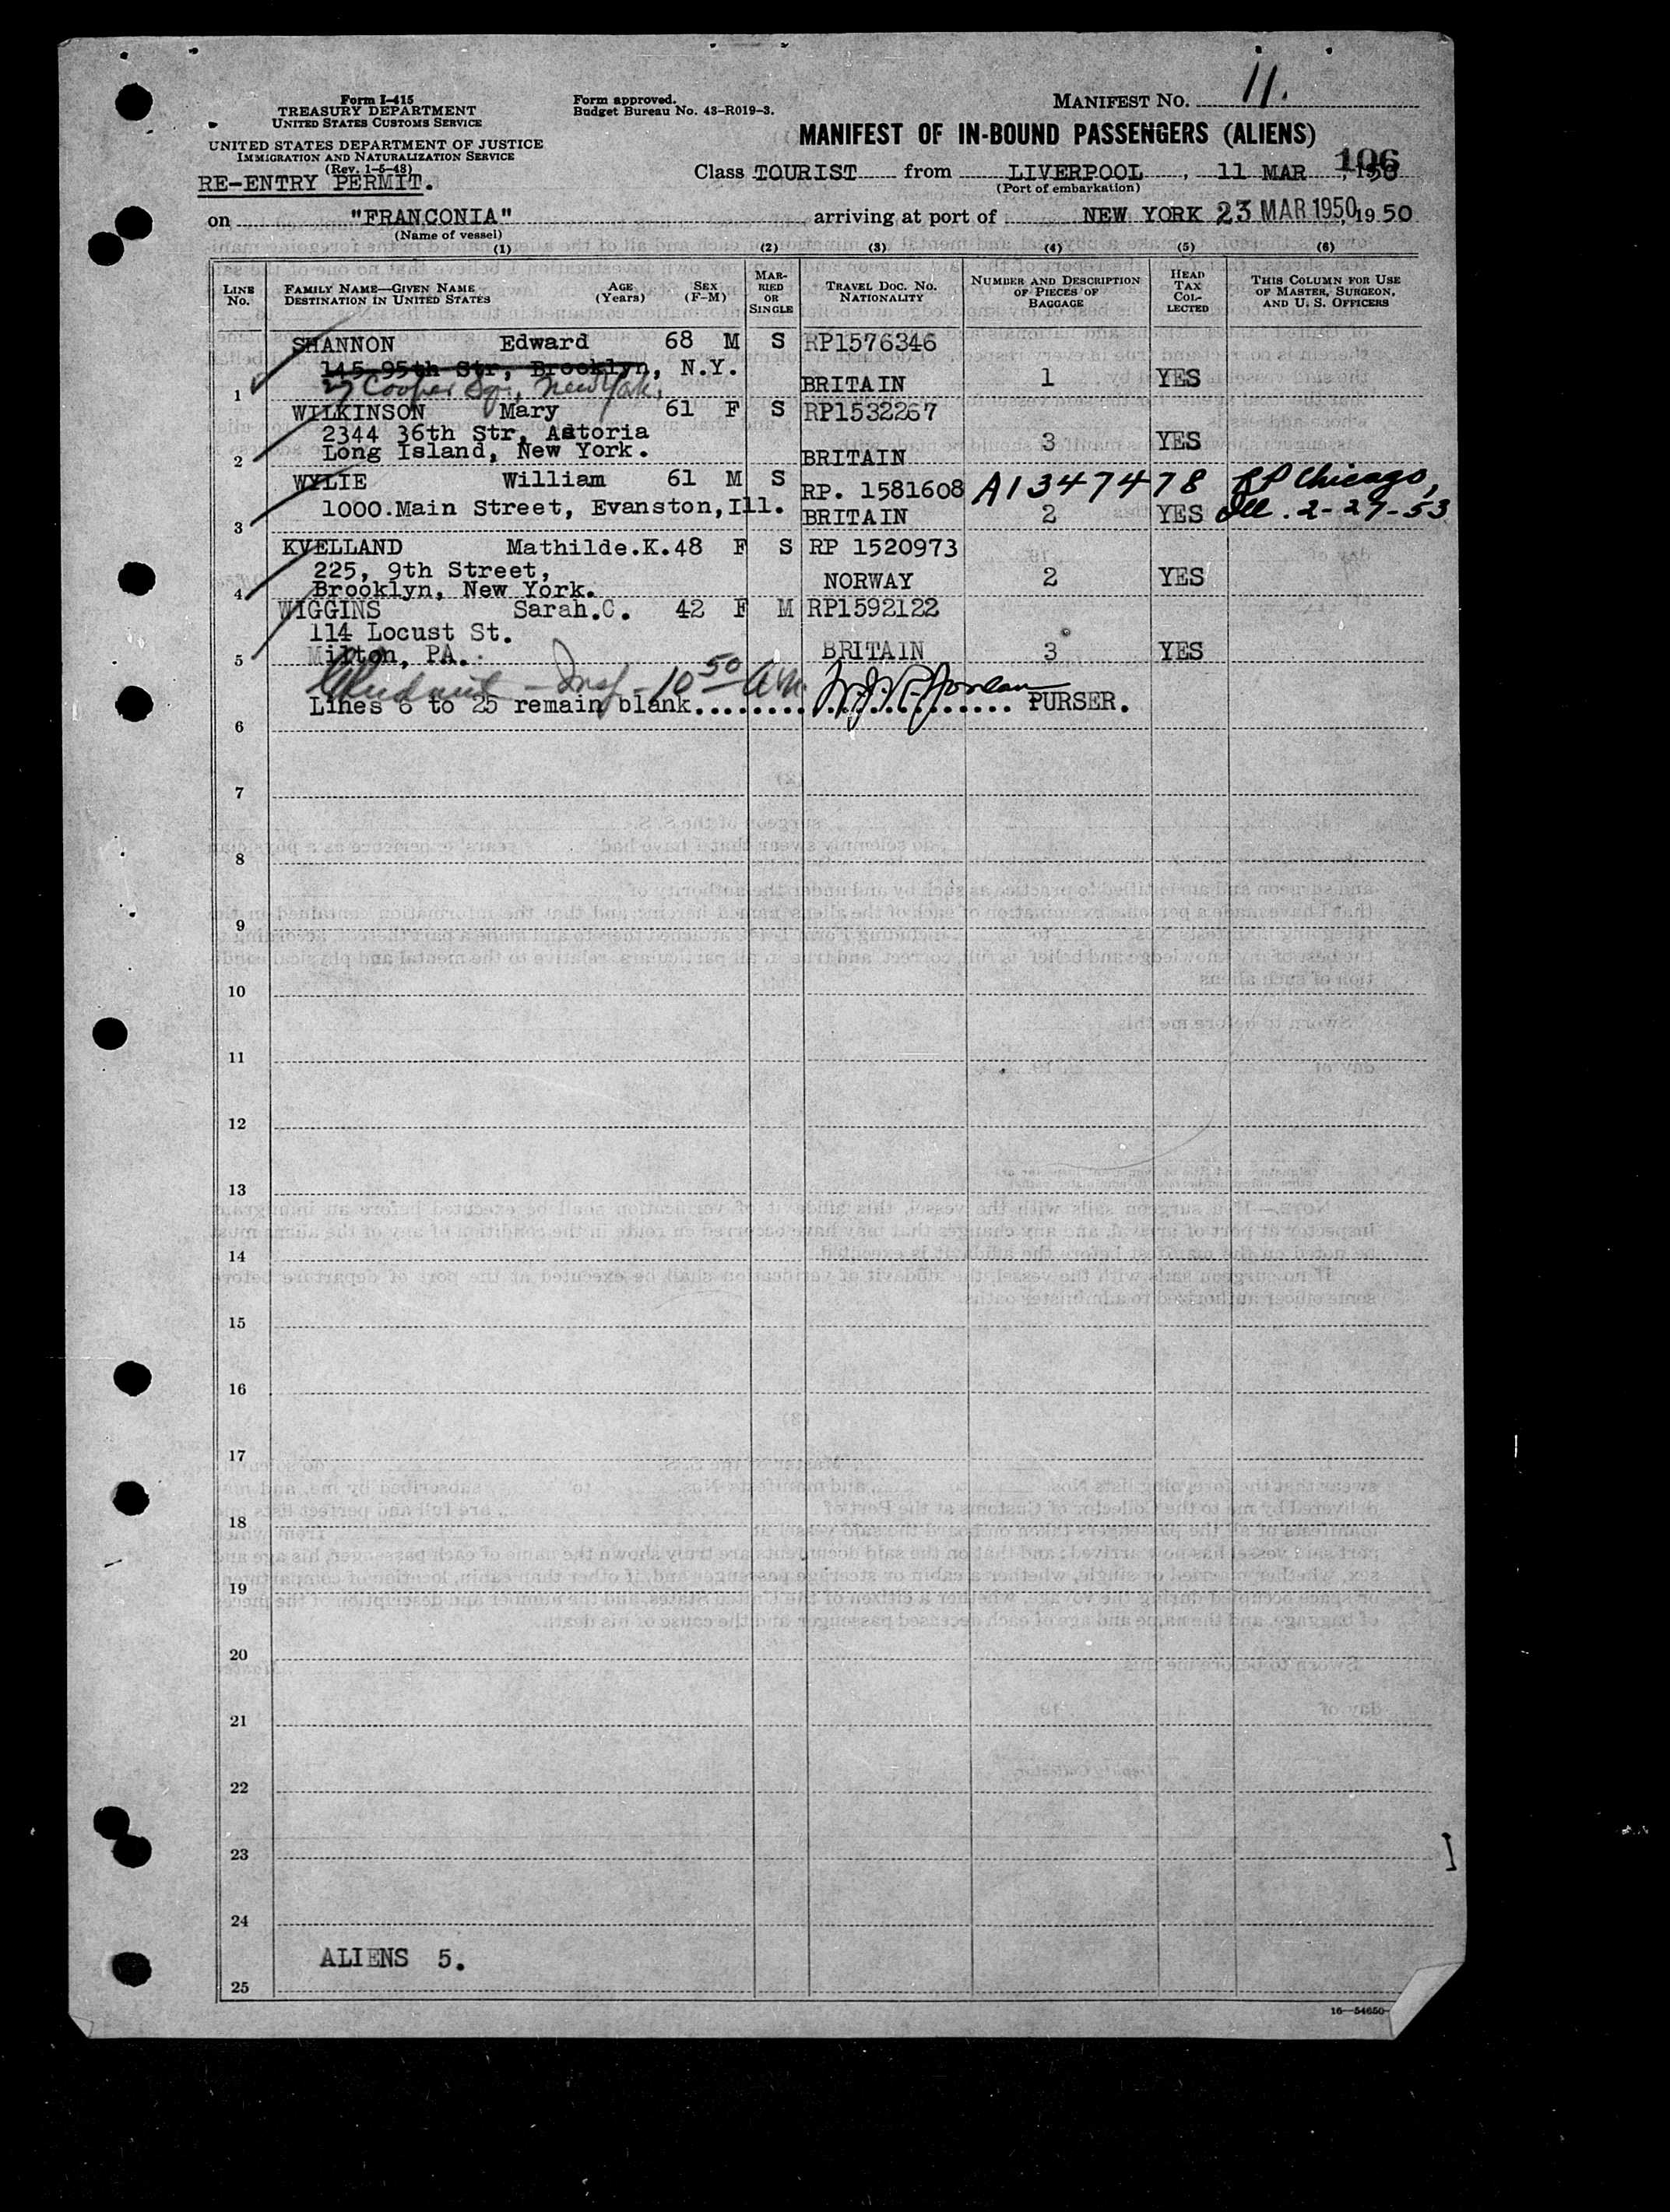 Form I-415
TREASURY DEPARTMENT
UNITED STATES CUSTOMS SERVICE
UNITED STATES DEPARTMENT OF JUSTICE
IMMIGRATION AND NATURALIZATION SERVICE
(Rev. 1-5-48)
RE-ENTRY PERMIT.
Form approved.
Budget Bureau No. 43-R019-3.
MANIFEST NO. 11.
MANIFEST OF IN-BOUND PASSENGERS (ALIENS)
106
Class TOURIST from LIVERPOOL, 11 MAR, 1950
(Port of embarkation)
on "FRANCONIA" arriving at port of NEW YORK 23 MAR 1950, 1950
(Name of vessel)
(1) (2) (3) (4) (5) (6)
LINE No. FAMILY NAME—GIVEN NAME DESTINATION IN UNITED STATES AGE (Years) SEX (F-M) MARRIED OR SINGLE TRAVEL DOC. NO. NATIONALITY NUMBER AND DESCRIPTION OF PIECES OF BAGGAGE HEAD TAX COLLECTED THIS COLUMN FOR USE OF MASTER, SURGEON, AND U. S. OFFICERS
SHANNON Edward 68 M S RP1576346
145 95th Str, Brooklyn, N.Y.
1 27 Cooper Sq., New York. BRITAIN 1 YES
WILKINSON Mary 61 F S RP1532267
2344 36th Str, Astoria
2 Long Island, New York. BRITAIN 3 YES
WYLIE William 61 M S RP. 1581608 A1347478 RP Chicago,
3 1000.Main Street, Evanston,Ill. BRITAIN 2 YES Ill. 2-27-53
KVELLAND Mathilde.K.48 F S RP 1520973
225, 9th Street,
4 Brooklyn, New York. NORWAY 2 YES
WIGGINS Sarah.C. 42 F M RP1592122
114 Locust St.
5 Milton, PA. BRITAIN 3 YES
- Insp - 10 50 AM.
Lines 6 to 25 remain blank.................... PURSER.
6
7
8
9
10
11
12
13
14
15
16
17
18
19
20
21
22
23
24
ALIENS 5.
25
16—54650